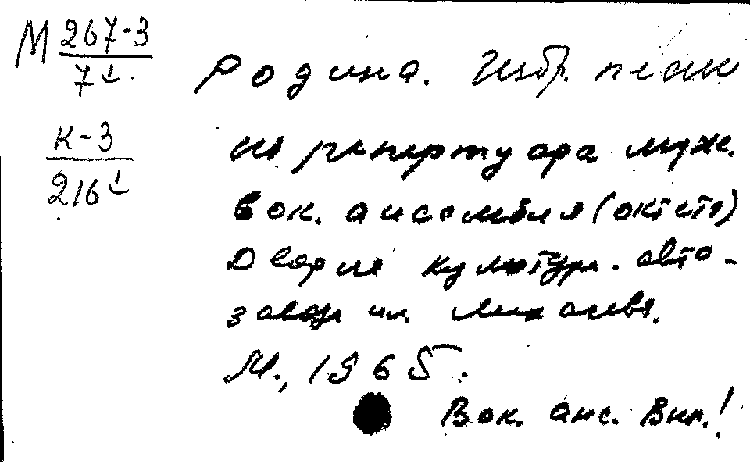 М 267-3
7
К-3
216
Родина. Избр. песни
из репертуара мужс.
вок. ансамбля (октета)
Дворца культуры. авто-
завода им. Лихачева.
М., 1965.
Вок. анс. Вкл.!